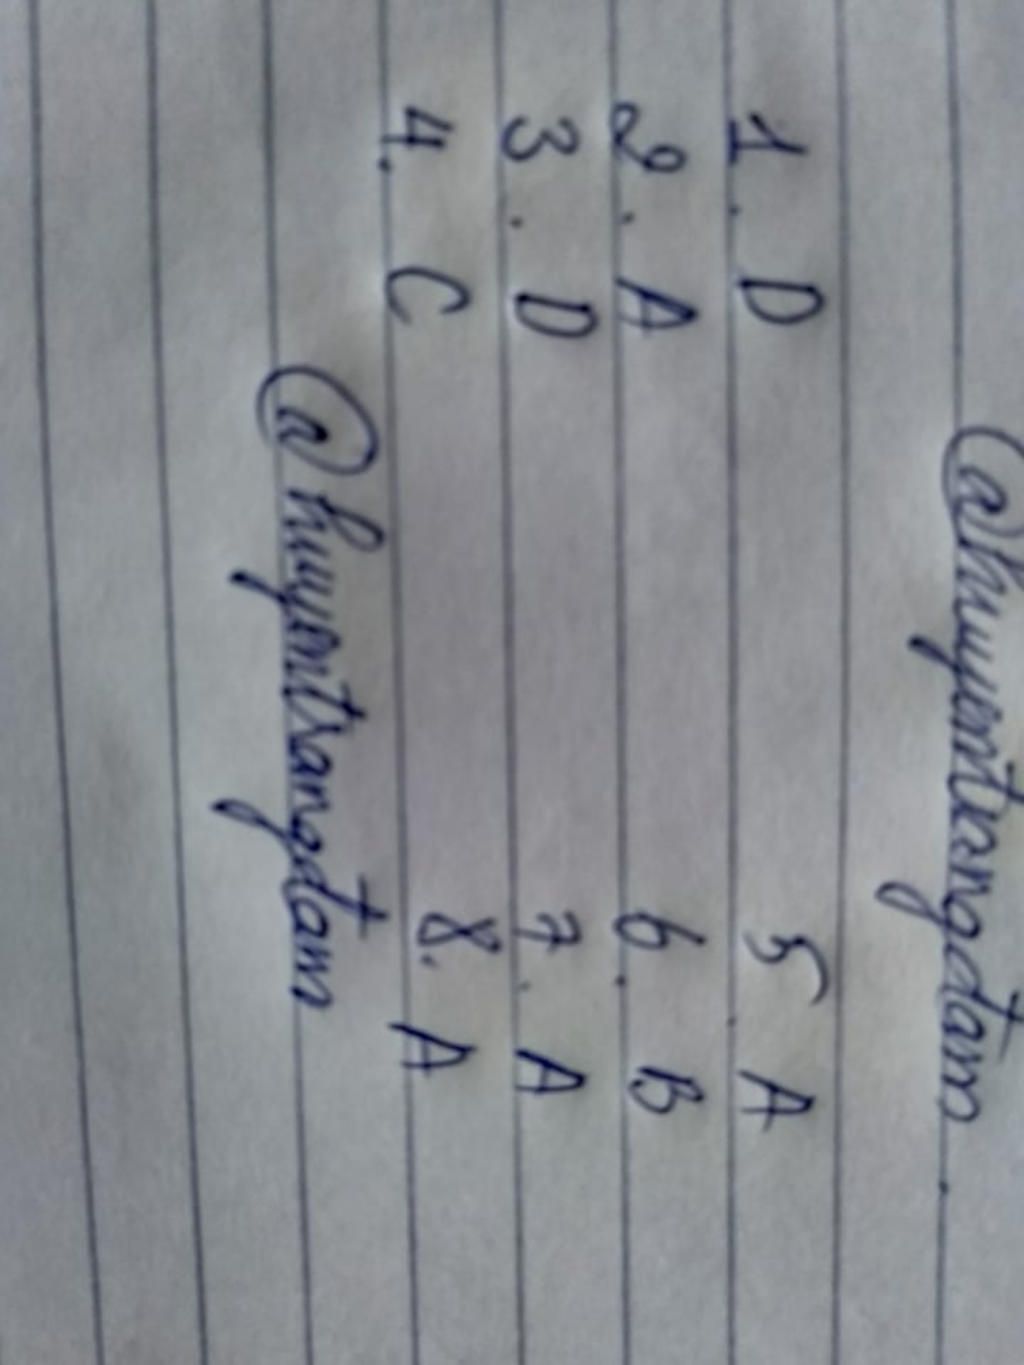 @huyentrangdam.
1. D 5. A
2. A 6. B
3. D 7. A
4. C 8. A
@huyentrangdam